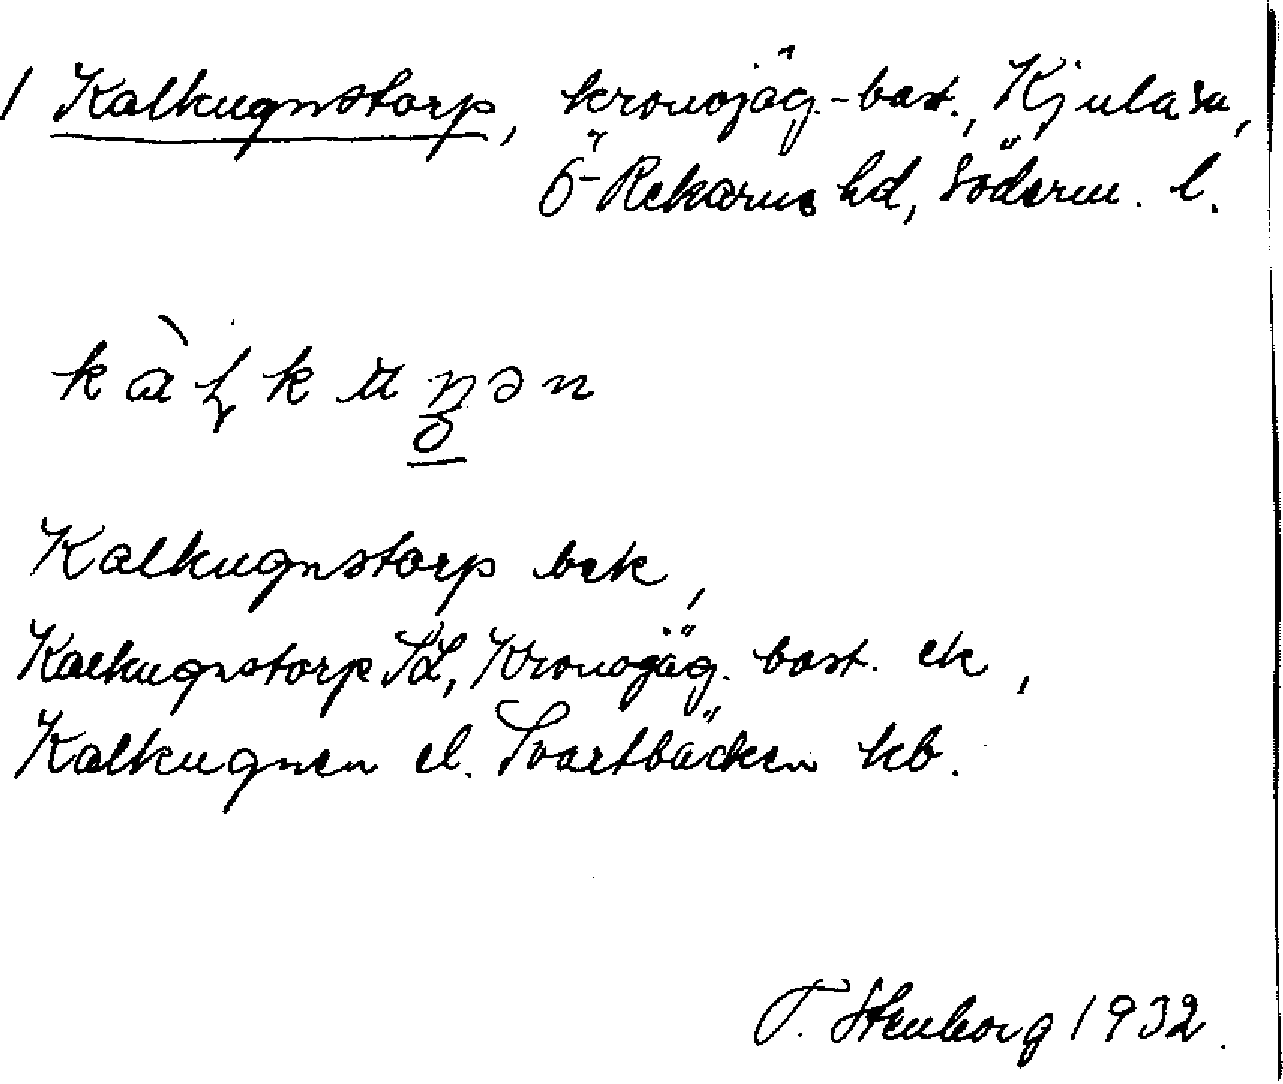 / Kalkugnstorp, kronojäg.-bost., Kjula sn,
Ö-Rekarne hd, Söderm. l.
Kalkugnstorp bek,
Kalkugnstorp SL, Kronojäg. bost. ek,
Kalkugnen el. Svartbäcken kb.
T. Stenborg 1932.